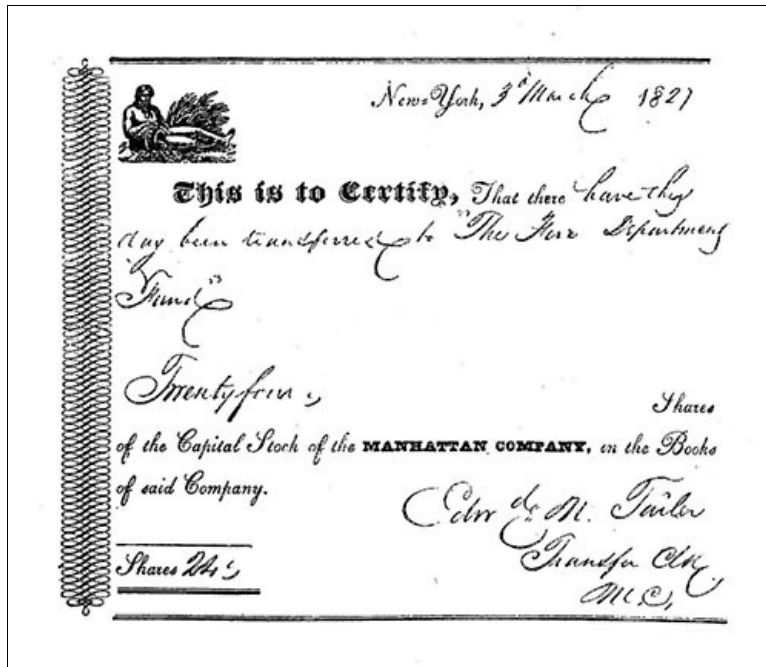 New=York, 3d March 1827
This is to Certify, That there have this
day been transferred to "The Fire Department
Fund"
Twenty four
Shares
of the Capital Stock of the MANHATTAN COMPANY, in the Books
of said Company.
Edwd. N. Tailer
Transfer Clk
M.C,
Shares 24